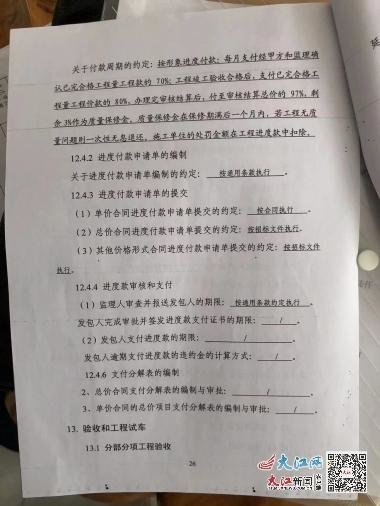 关于付款周期的约定：按形象进度付款：每月支付经甲方和监理确
认已完合格工程量工程款的 70%；工程竣工验收合格后，支付已完合格工
程量工程价款的 80%，办理完审核结算后，付至审核结算总价的 97%，剩
余3%作为质量保修金。质量保修金在保修期满后一个月内，若工程无质
量问题则一次性无息退还。施工单位的处罚金额在工程进度款中扣除。
12.4.2 进度付款申请单的编制
关于进度付款申请单编制的约定： 按通用条款执行 。
12.4.3 进度付款申请单的提交
（1）单价合同进度付款申请单提交的约定： 按合同执行 。
（2）总价合同进度付款申请单提交的约定：按招标文件执行。
（3）其他价格形式合同进度付款申请单提交的约定：按招标文件
执行。
12.4.4 进度款审核和支付
（1）监理人审查并报送发包人的期限： 按通用条款约定执行 。
发包人完成审批并签发进度款支付证书的期限： / 。
（2）发包人支付进度款的期限： / 。
发包人逾期支付进度款的违约金的计算方式： / 。
12.4.6 支付分解表的编制
2、总价合同支付分解表的编制与审批： / 。
3、单价合同的总价项目支付分解表的编制与审批： / 。
13. 验收和工程试车
13.1 分部分项工程验收
26
大江网
大江新闻